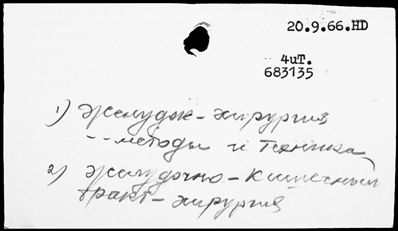 20.9.66.HD
4uT.
683135
1) Желудок - хирургия
-- методы и техника
2) Желудочно - кишечный
тракт - хирургия